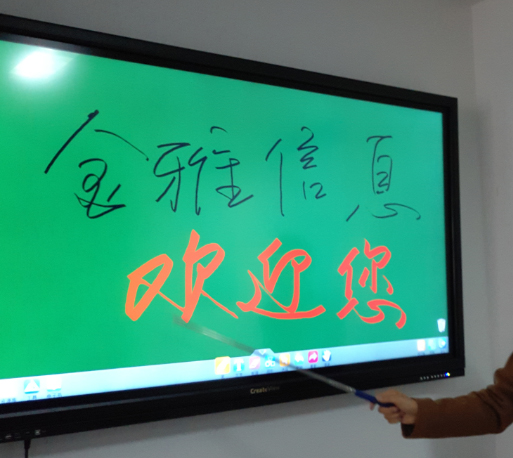 金雅信息
欢迎您